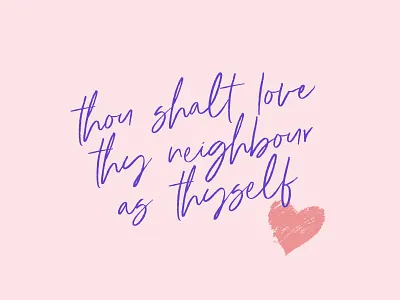 thou shalt love
thy neighbour
as thyself